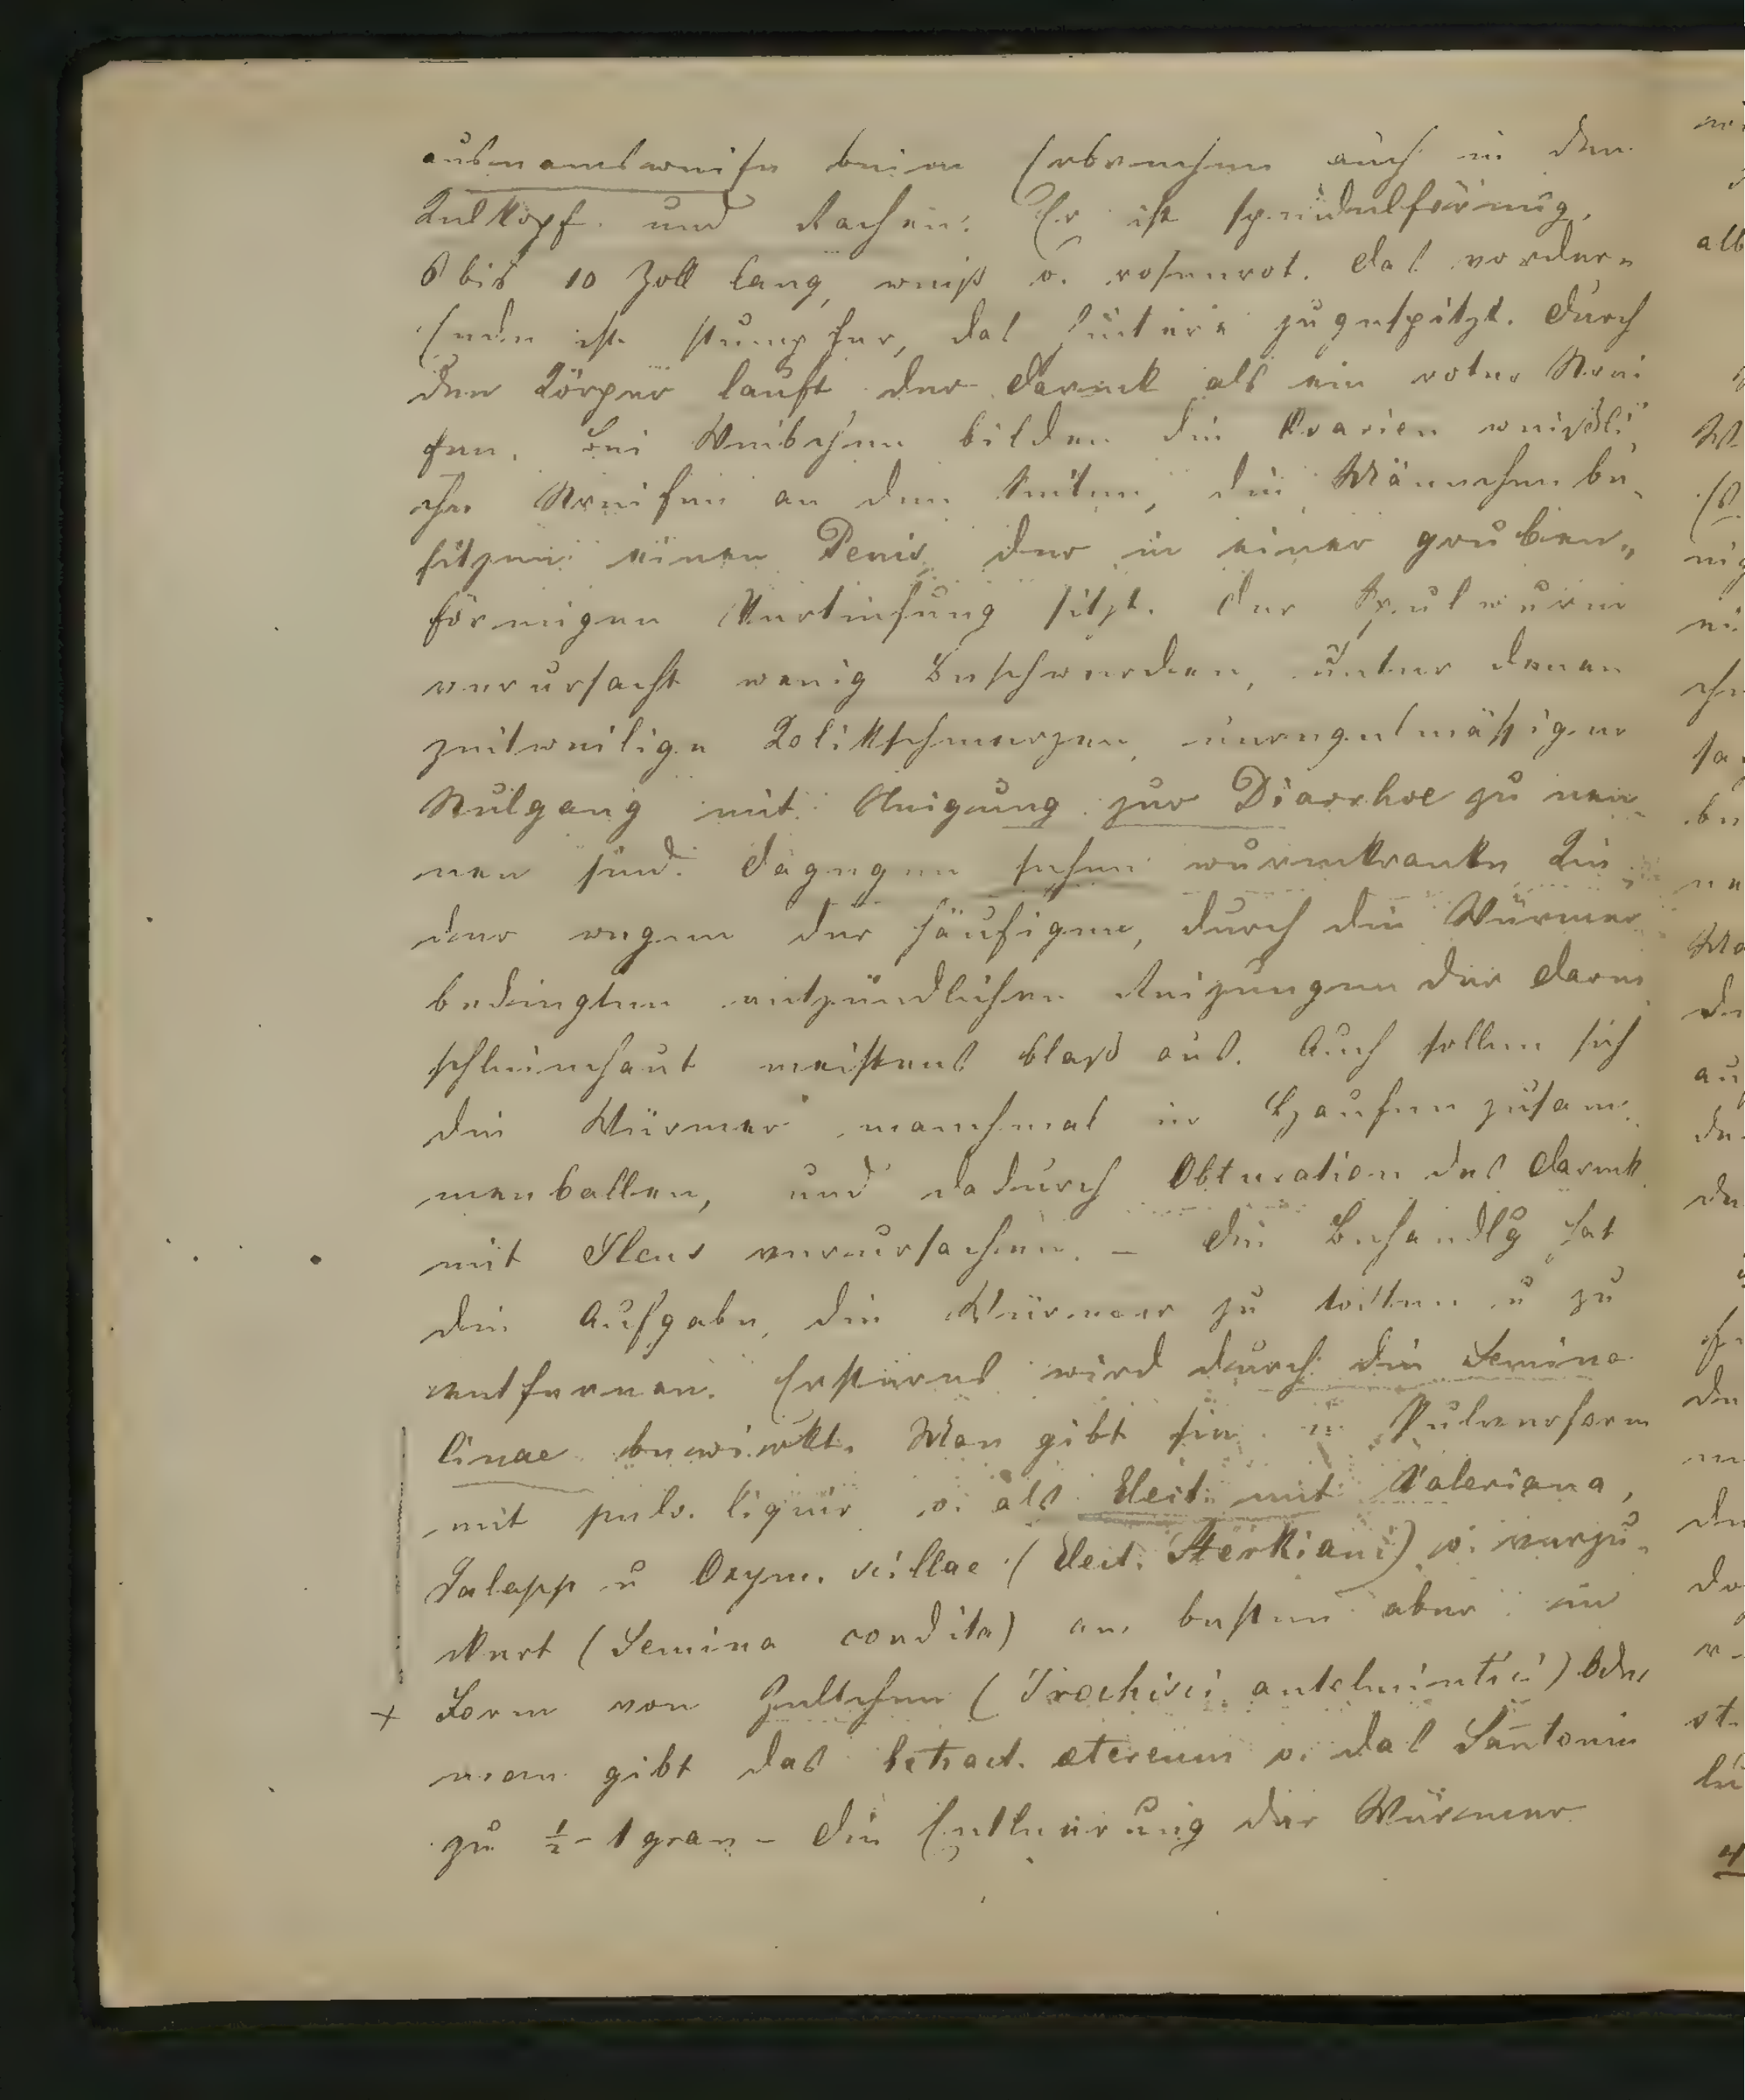 ausnamsweise beim Erbrechen auch in den
Kelkopf und Rachen. Er ist spindelförmig,
6 bis 10 Zoll lang, weiß o. rosenrot. Das vordere
Ende ist stumpfer, das hintere zugespitzt. Durch
den Körper lauft der Darmk als ein roter Strei
fen. Bei Weibchen bilden die Ovarien weißli
che Streifen an den Seiten, die Männchen be-
sitzen einen Penis, der in einer gruben-
förmigen Vertiefung sitzt. Der Spulwurm
verursacht wenig Beschwerden, unter denen
zeitweilige Kolikschmerzen, unregelmäßiger
Stulgang mit Neigung zur Diarrhoe zu nen-
nen sind. Dagegen sehen wurmkranke Kin-
der wegen der häufigen, durch die Würmer
bedingten entzündlichen Reizungen der Darm
schleimhaut meistens blaß aus. Auch sollen sich
die Würmer manchmal in Haufen zusam-
menballen, und dadurch Obturation des Darmk
mit Ileus verursachen. – Die Behandlg hat
die Aufgabe, die Würmer zu tödten u zu
entfernen. Ersteres wird durch die Semina
cinae bewirkt. Man gibt sie in Pulverform
mit pulv. liquir o. als Elect. mit Valeriana,
Jalapp u Oxym. scillae (Elect. Störkiani) o. verzu-
kert (Semina condita) am besten aber in
+ Form von Zeltchen (Trochisci antelmintici) Oder
man gibt das Extract. ætereum o. das Santonin
zu ½ - 1 gran – Die Entleerung der Würmer